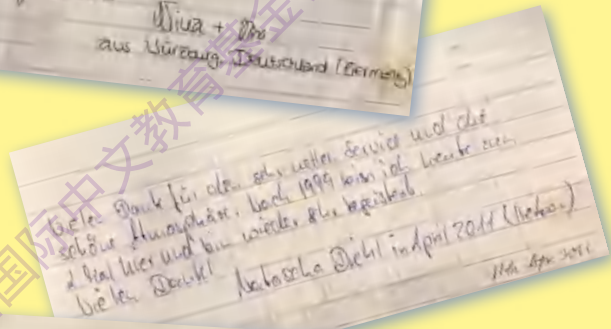 aus Würzburg, Deutschland (Germany)
Vielen Dank für den sehr netten Service und die
schöne Atmosphäre. Nach 1999 bin ich heute zum
2. Mal hier und bin wieder sehr begeistert.
Vielen Dank!
Natascha Diehl im April 2011
国际中文教育基金